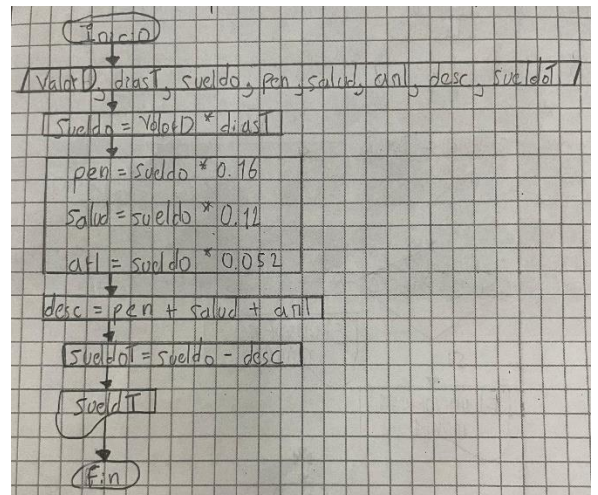 Inicio
ValorD, diasT, sueldo, pen, salud, arl, desc, sueldoT
Sueldo = ValorD * diasT
pen = sueldo * 0.16
salud = sueldo * 0.12
arl = sueldo * 0.052
desc = pen + salud + arl
sueldoT = sueldo - desc
SueldT
Fin